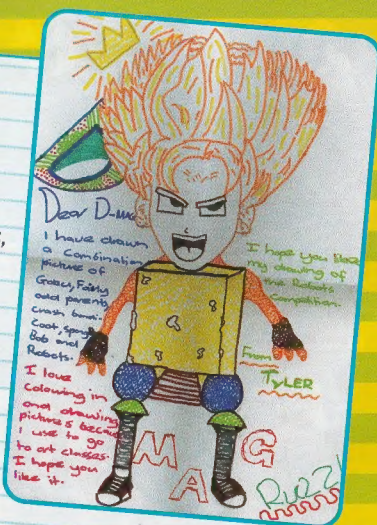 Dear D-MAG
I have drawn
a combination
picture of
Goku, Fairly
odd parents,
crash bandi-
Coot, Spong
Bob and
Robots.
I love
colouring in
and drawing
pictures because
I use to go
to art classes.
I hope you
like it.
I hope you like
my drawing of
the Robots
competition.
From
TYLER
M A G